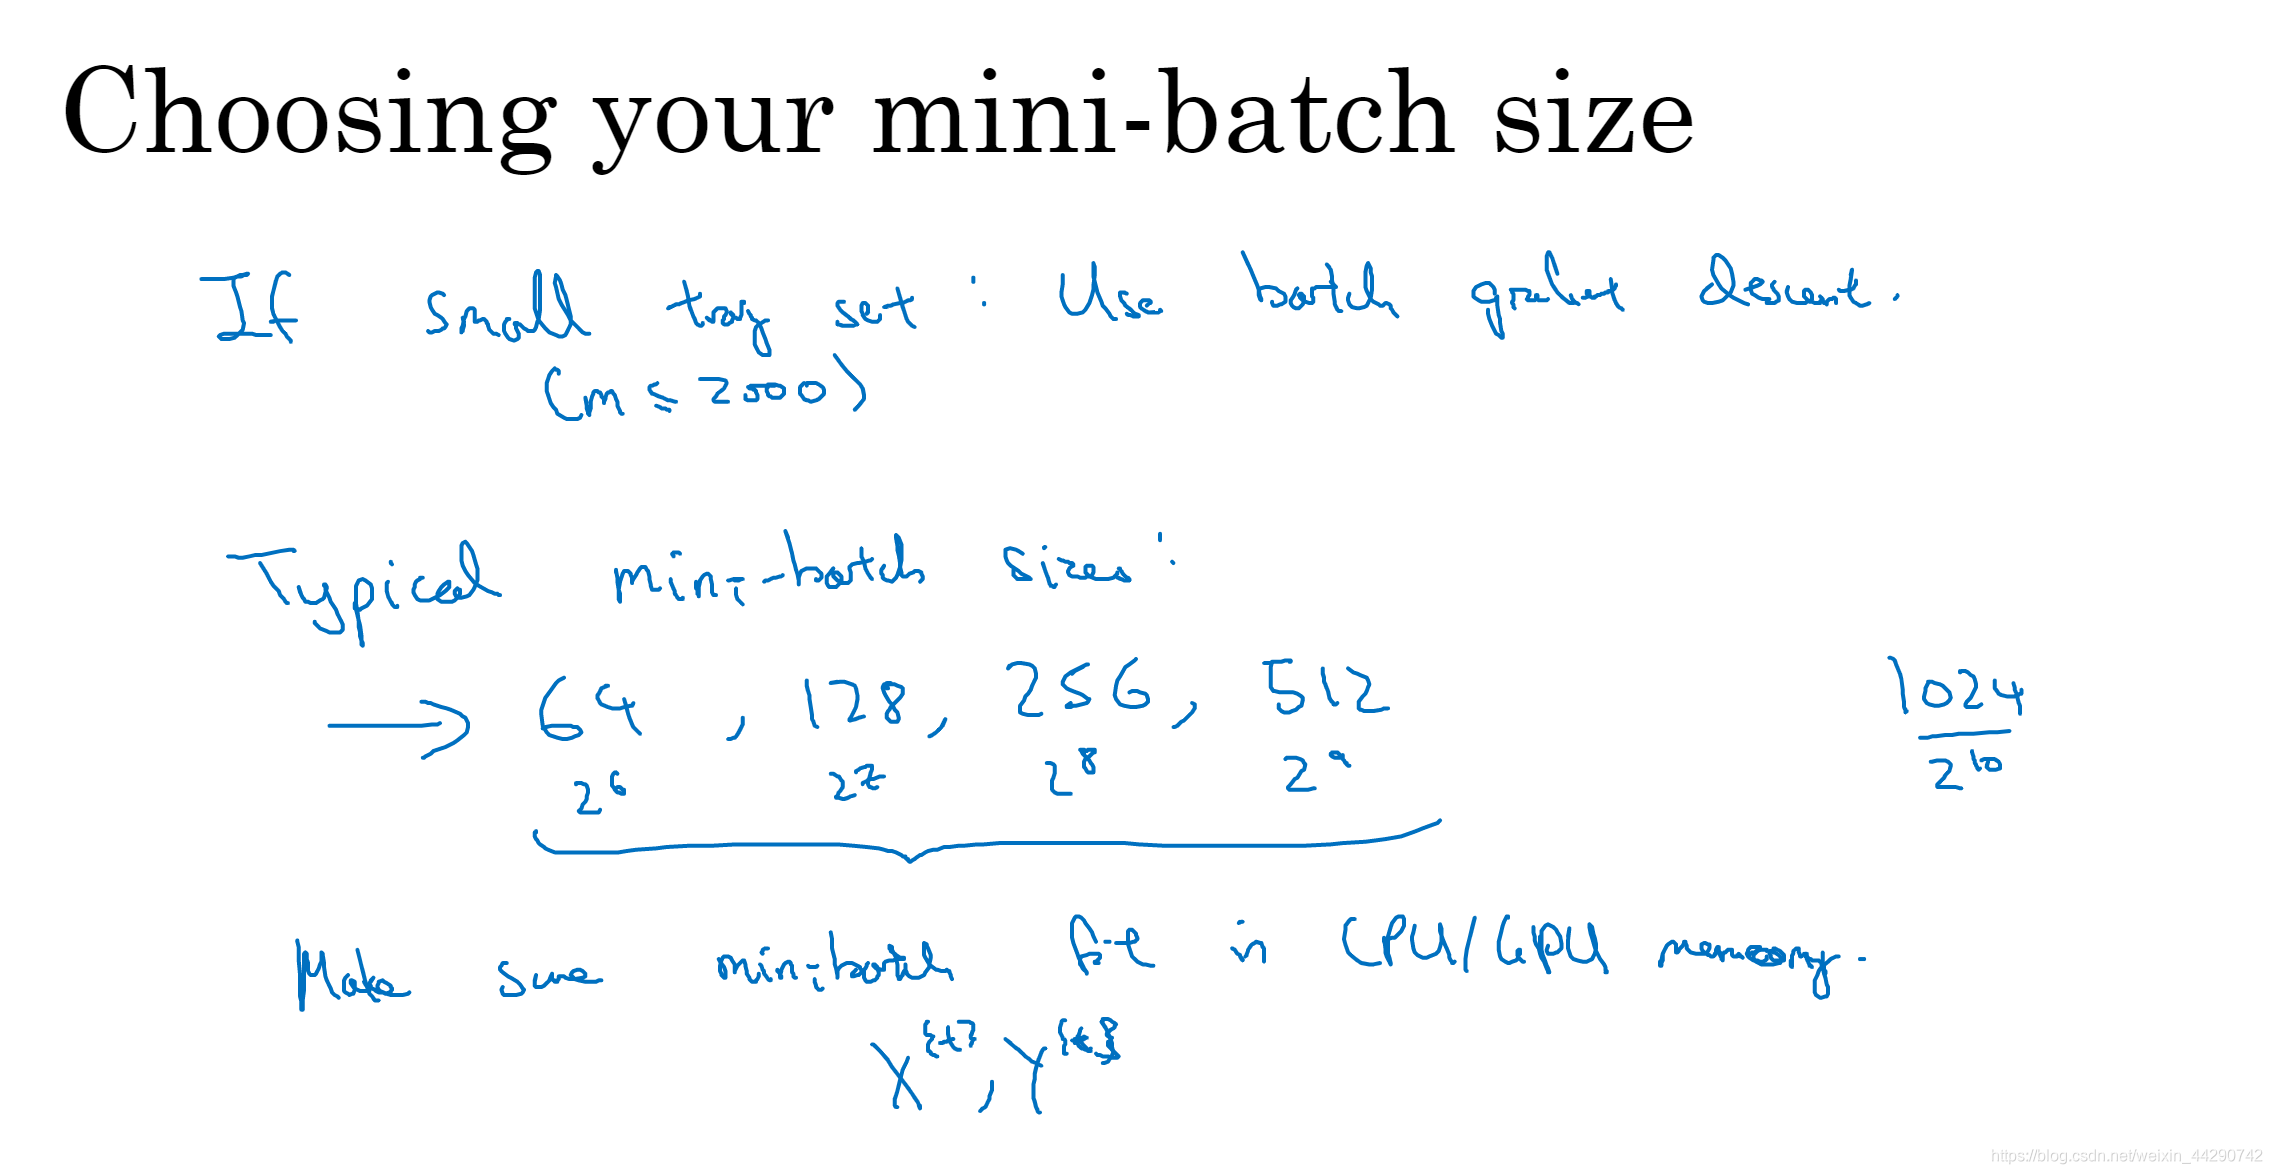 Choosing your mini-batch size
If small trag set : Use batch gradient descent.
(m ≤ 2000)
Typical mini-batch sizes :
→ 64 , 128, 256, 512 1024
2^6 2^7 2^8 2^9 2^10
Make sure minibatch fit in CPU/GPU memory.
X^{t}, Y^{t}
https://blog.csdn.net/weixin_44290742